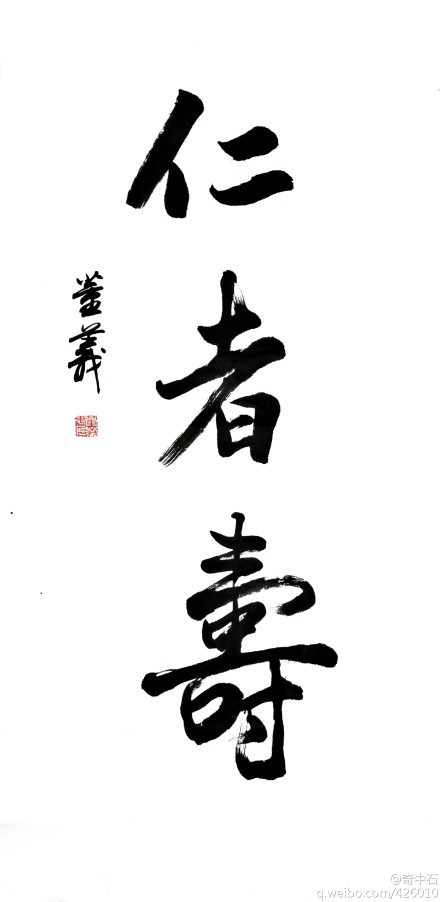 仁者壽
董義
@奇中石
q.weibo.com/426010